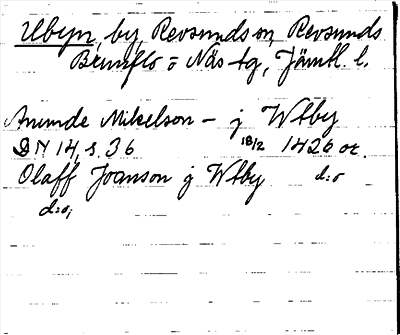 Utbyn, by, Revsunds sn, Revsunds
Brunflo o Näs tg, Jämtl. l.
Anunde Mikelson – j Wtby
DN 14, s. 36 18/2 1426 or.
Olaff Joanson j Wtby d:o
d:o,